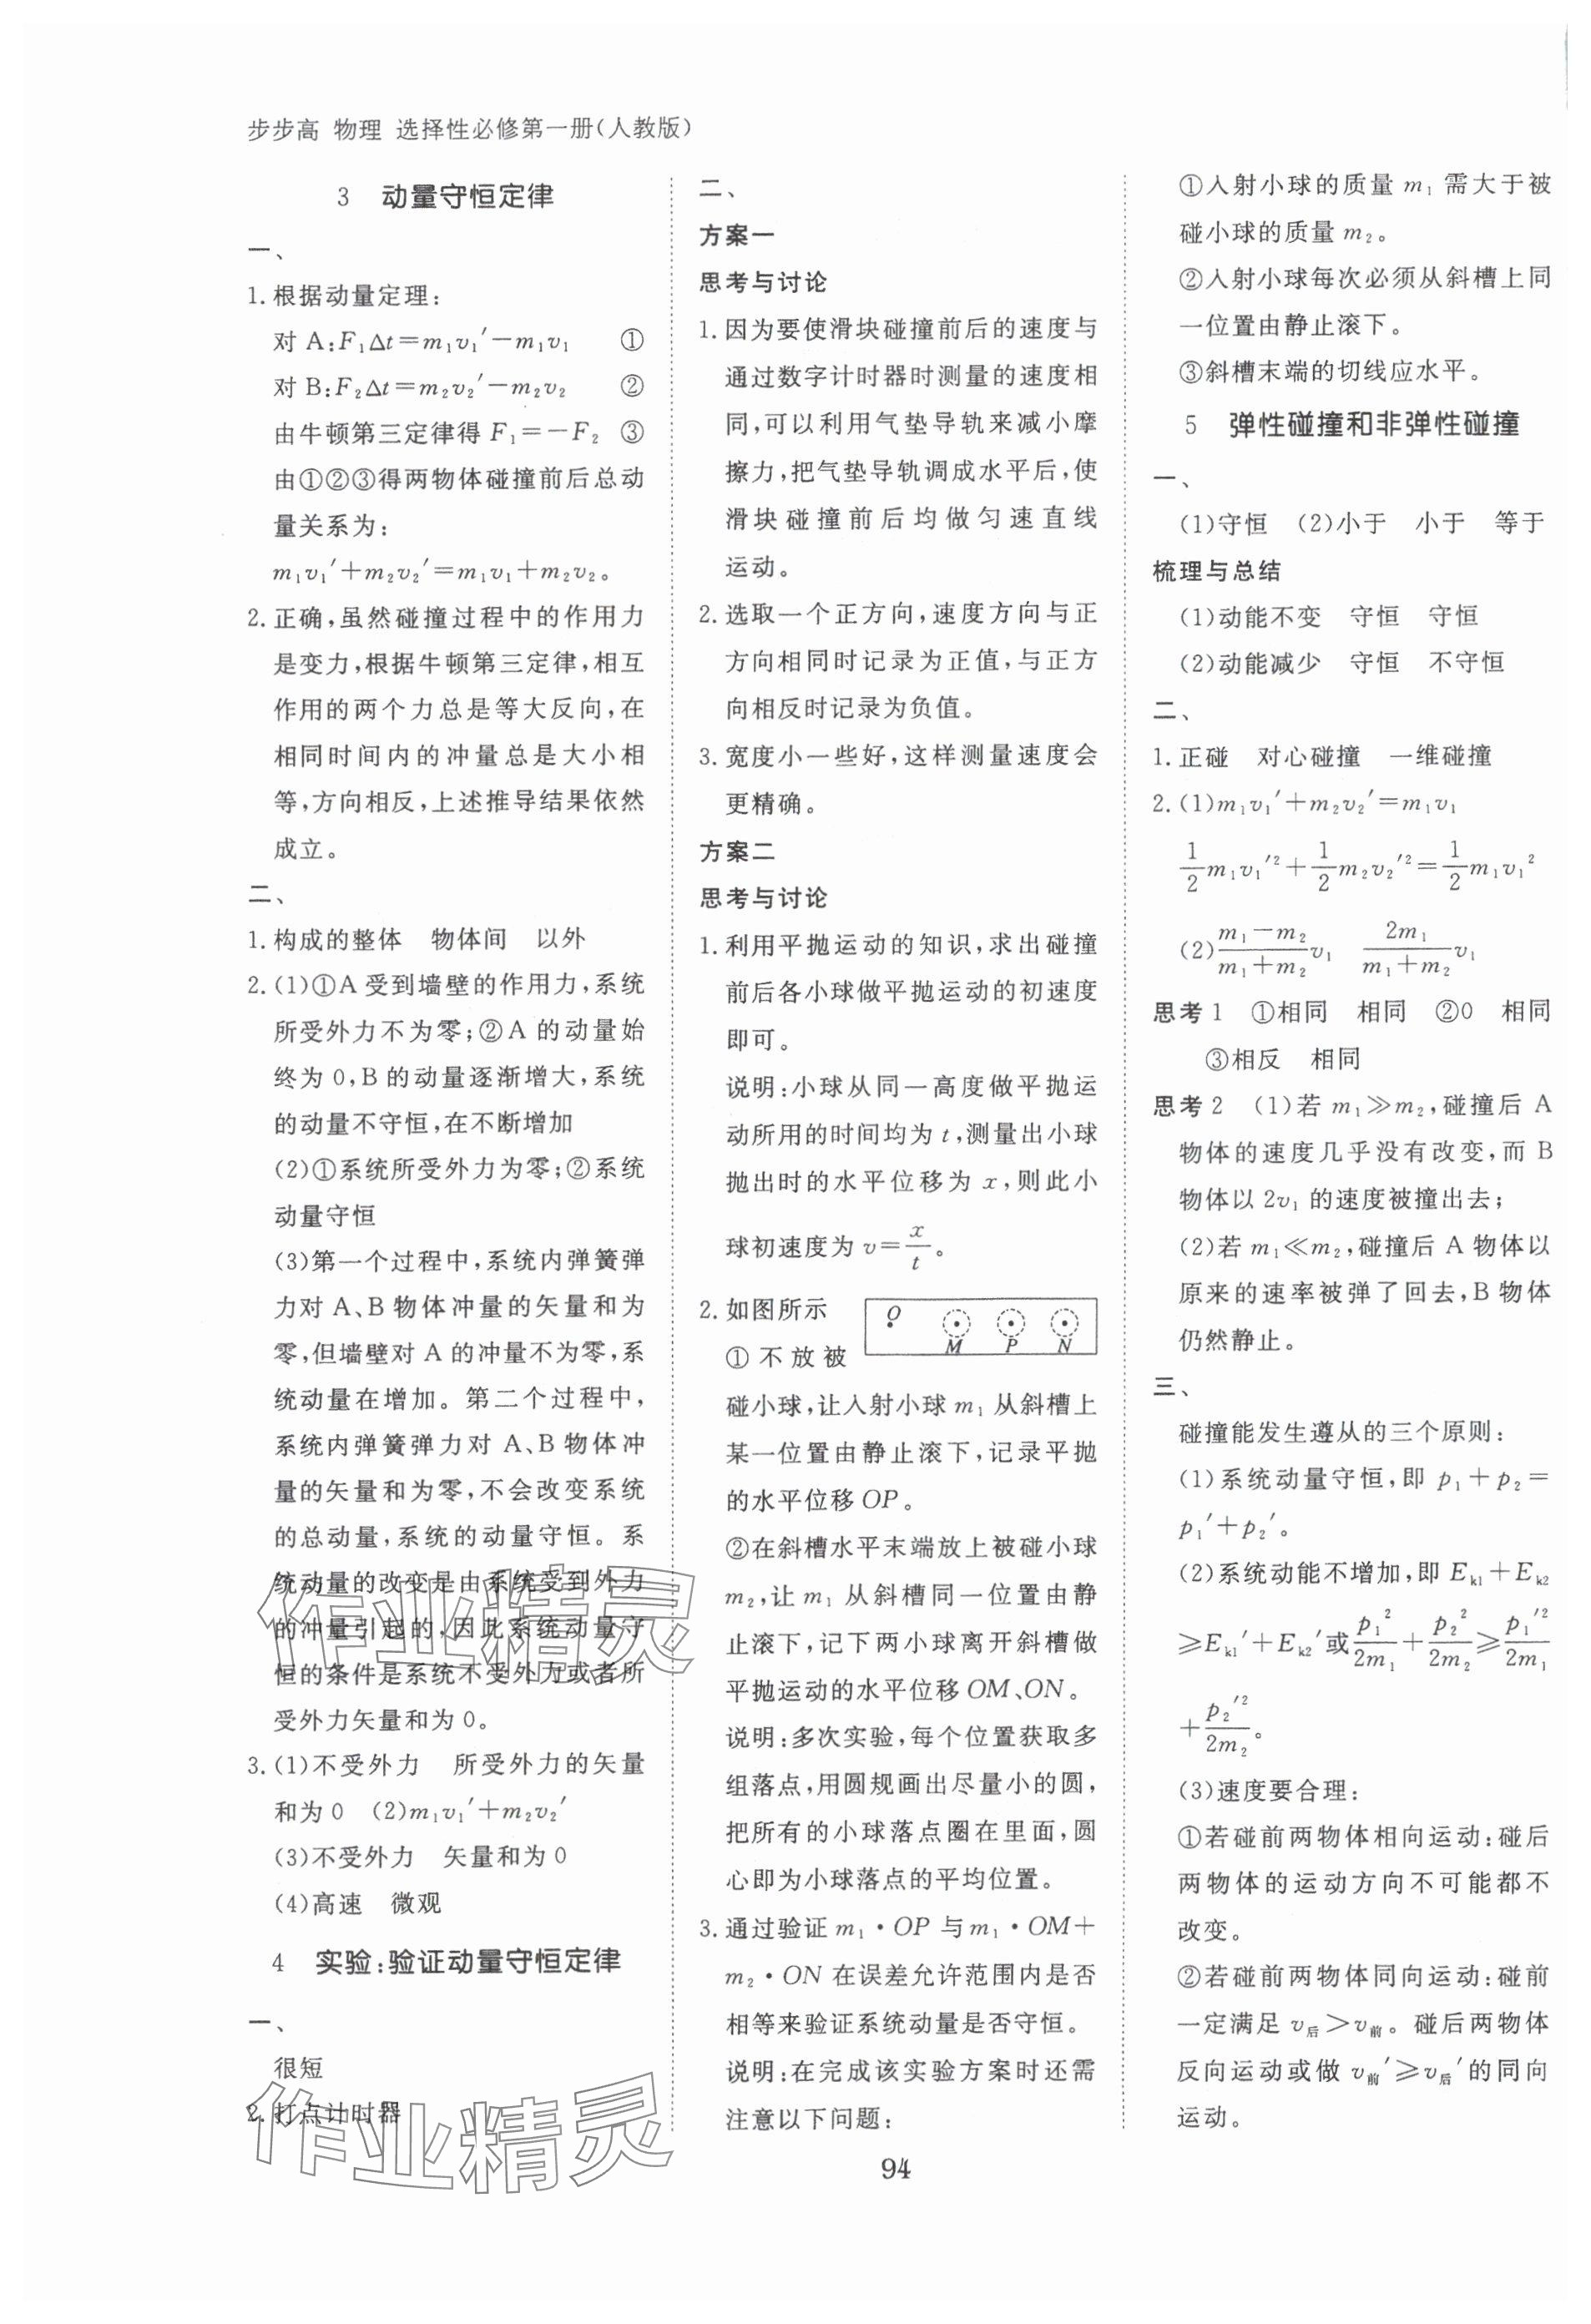 步步高 物理 选择性必修第一册(人教版)
3 动量守恒定律
一、
1.根据动量定理:
对 A:F₁Δt=m₁v₁′−m₁v₁ ①
对 B:F₂Δt=m₂v₂′−m₂v₂ ②
由牛顿第三定律得 F₁=−F₂ ③
由①②③得两物体碰撞前后总动
量关系为:
m₁v₁′+m₂v₂′=m₁v₁+m₂v₂。
2.正确,虽然碰撞过程中的作用力
是变力,根据牛顿第三定律,相互
作用的两个力总是等大反向,在
相同时间内的冲量总是大小相
等,方向相反,上述推导结果依然
成立。
二、
1.构成的整体 物体间 以外
2.(1)①A 受到墙壁的作用力,系统
所受外力不为零;②A 的动量始
终为 0,B 的动量逐渐增大,系统
的动量不守恒,在不断增加
(2)①系统所受外力为零;②系统
动量守恒
(3)第一个过程中,系统内弹簧弹
力对 A、B 物体冲量的矢量和为
零,但墙壁对 A 的冲量不为零,系
统动量在增加。第二个过程中,
系统内弹簧弹力对 A、B 物体冲
量的矢量和为零,不会改变系统
的总动量,系统的动量守恒。系
统动量的改变是由系统受到外力
的冲量引起的,因此系统动量守
恒的条件是系统不受外力或者所
受外力矢量和为 0。
3.(1)不受外力 所受外力的矢量
和为 0 (2)m₁v₁′+m₂v₂′
(3)不受外力 矢量和为 0
(4)高速 微观
4 实验:验证动量守恒定律
一、
很短
2.打点计时器
二、
方案一
思考与讨论
1.因为要使滑块碰撞前后的速度与
通过数字计时器时测量的速度相
同,可以利用气垫导轨来减小摩
擦力,把气垫导轨调成水平后,使
滑块碰撞前后均做匀速直线
运动。
2.选取一个正方向,速度方向与正
方向相同时记录为正值,与正方
向相反时记录为负值。
3.宽度小一些好,这样测量速度会
更精确。
方案二
思考与讨论
1.利用平抛运动的知识,求出碰撞
前后各小球做平抛运动的初速度
即可。
说明:小球从同一高度做平抛运
动所用的时间均为 t,测量出小球
抛出时的水平位移为 x,则此小
球初速度为 v=x/t。
2.如图所示
O M P N
①不放被
碰小球,让入射小球 m₁ 从斜槽上
某一位置由静止滚下,记录平抛
的水平位移 OP。
②在斜槽水平末端放上被碰小球
m₂,让 m₁ 从斜槽同一位置由静
止滚下,记下两小球离开斜槽做
平抛运动的水平位移 OM、ON。
说明:多次实验,每个位置获取多
组落点,用圆规画出尽量小的圆,
把所有的小球落点圈在里面,圆
心即为小球落点的平均位置。
3.通过验证 m₁·OP 与 m₁·OM+
m₂·ON 在误差允许范围内是否
相等来验证系统动量是否守恒。
说明:在完成该实验方案时还需
注意以下问题:
①入射小球的质量 m₁ 需大于被
碰小球的质量 m₂。
②入射小球每次必须从斜槽上同
一位置由静止滚下。
③斜槽末端的切线应水平。
5 弹性碰撞和非弹性碰撞
一、
(1)守恒 (2)小于 小于 等于
梳理与总结
(1)动能不变 守恒 守恒
(2)动能减少 守恒 不守恒
二、
1.正碰 对心碰撞 一维碰撞
2.(1)m₁v₁′+m₂v₂′=m₁v₁
1/2 m₁v₁′²+1/2 m₂v₂′²=1/2 m₁v₁²
(2)(m₁−m₂)/(m₁+m₂) v₁ 2m₁/(m₁+m₂) v₁
思考 1 ①相同 相同 ②0 相同
③相反 相同
思考 2 (1)若 m₁≫m₂,碰撞后 A
物体的速度几乎没有改变,而 B
物体以 2v₁ 的速度被撞出去;
(2)若 m₁≪m₂,碰撞后 A 物体以
原来的速率被弹了回去,B 物体
仍然静止。
三、
碰撞能发生遵从的三个原则:
(1)系统动量守恒,即 p₁+p₂=
p₁′+p₂′。
(2)系统动能不增加,即 Eₖ₁+Eₖ₂
≥Eₖ₁′+Eₖ₂′或 p₁²/2m₁+p₂²/2m₂≥p₁′²/2m₁
+p₂′²/2m₂。
(3)速度要合理:
①若碰前两物体相向运动:碰后
两物体的运动方向不可能都不
改变。
②若碰前两物体同向运动:碰前
一定满足 v后>v前。碰后两物体
反向运动或做 v前′≥v后′的同向
运动。
94
作业精灵
作业精灵